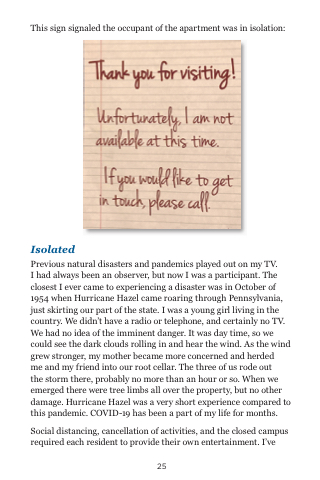 This sign signaled the occupant of the apartment was in isolation:
Thank you for visiting!
Unfortunately, I am not
available at this time.
If you would like to get
in touch, please call
Isolated
Previous natural disasters and pandemics played out on my TV.
I had always been an observer, but now I was a participant. The
closest I ever came to experiencing a disaster was in October of
1954 when Hurricane Hazel came roaring through Pennsylvania,
just skirting our part of the state. I was a young girl living in the
country. We didn't have a radio or telephone, and certainly no TV.
We had no idea of the imminent danger. It was day time, so we
could see the dark clouds rolling in and hear the wind. As the wind
grew stronger, my mother became more concerned and herded
me and my friend into our root cellar. The three of us rode out
the storm there, probably no more than an hour or so. When we
emerged there were tree limbs all over the property, but no other
damage. Hurricane Hazel was a very short experience compared to
this pandemic. COVID-19 has been a part of my life for months.
Social distancing, cancellation of activities, and the closed campus
required each resident to provide their own entertainment. I've
25